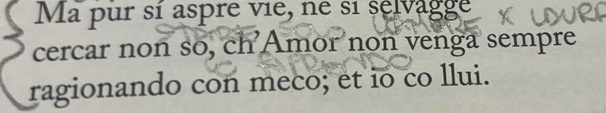 Ma pur sí aspre vie, né sí selvagge
X LAURA
cercar non so, ch'Amor non venga sempre
ragionando con meco; et io co llui.